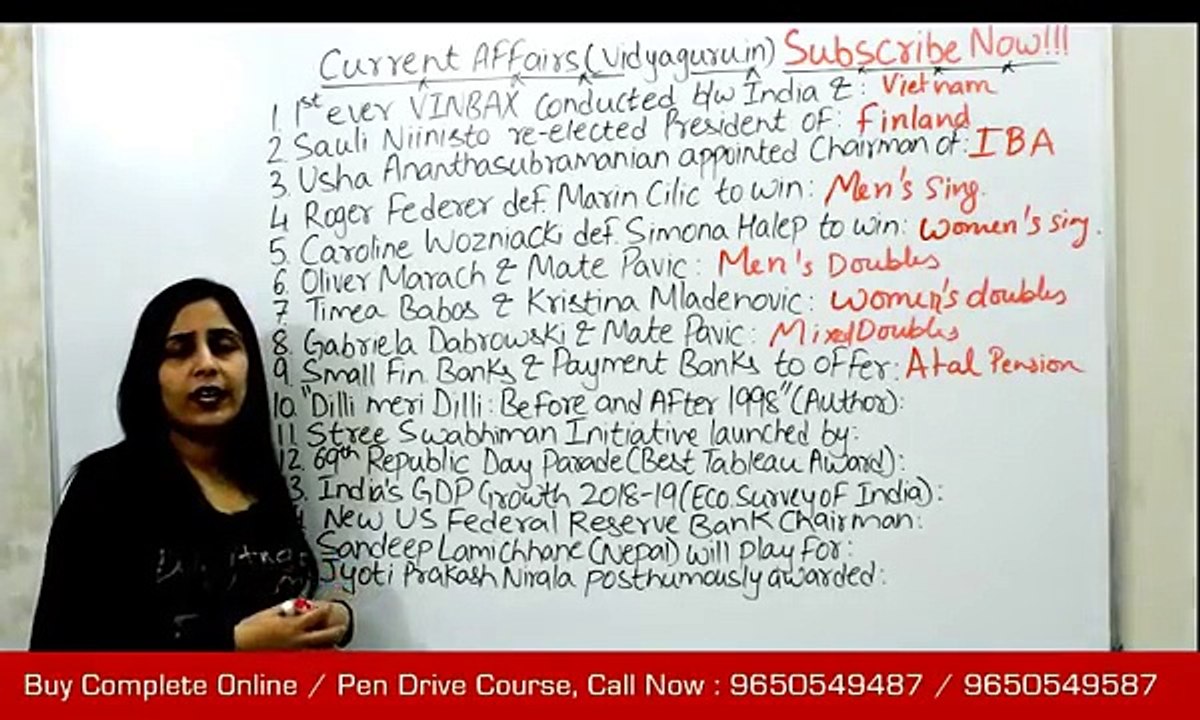 Current Affairs (Vidyaguru.in) Subscribe Now!!!
1. 1st ever VINBAX conducted b/w India & : Vietnam
2. Sauli Niinisto re-elected President of: Finland
3. Usha Ananthasubramanian appointed Chairman of: IBA
4. Roger Federer def. Marin Cilic to win: Men's Sing.
5. Caroline Wozniacki def. Simona Halep to win: Women's sing.
6. Oliver Marach & Mate Pavic: Men's Doubles
7. Timea Babos & Kristina Mladenovic: Women's doubles
8. Gabriela Dabrowski & Mate Pavic: Mixed Doubles
9. Small Fin. Banks & Payment Banks to offer: Atal Pension
10. "Dilli meri Dilli: Before and After 1998" (Author):
11. Stree Swabhiman Initiative launched by:
12. 69th Republic Day Parade (Best Tableau Award):
3. India's GDP Growth 2018-19 (Eco. Survey of India):
New US Federal Reserve Bank Chairman:
Sandeep Lamichhane (Nepal) will play for:
Jyoti Prakash Nirala posthumously awarded:
Buy Complete Online / Pen Drive Course, Call Now : 9650549487 / 9650549587